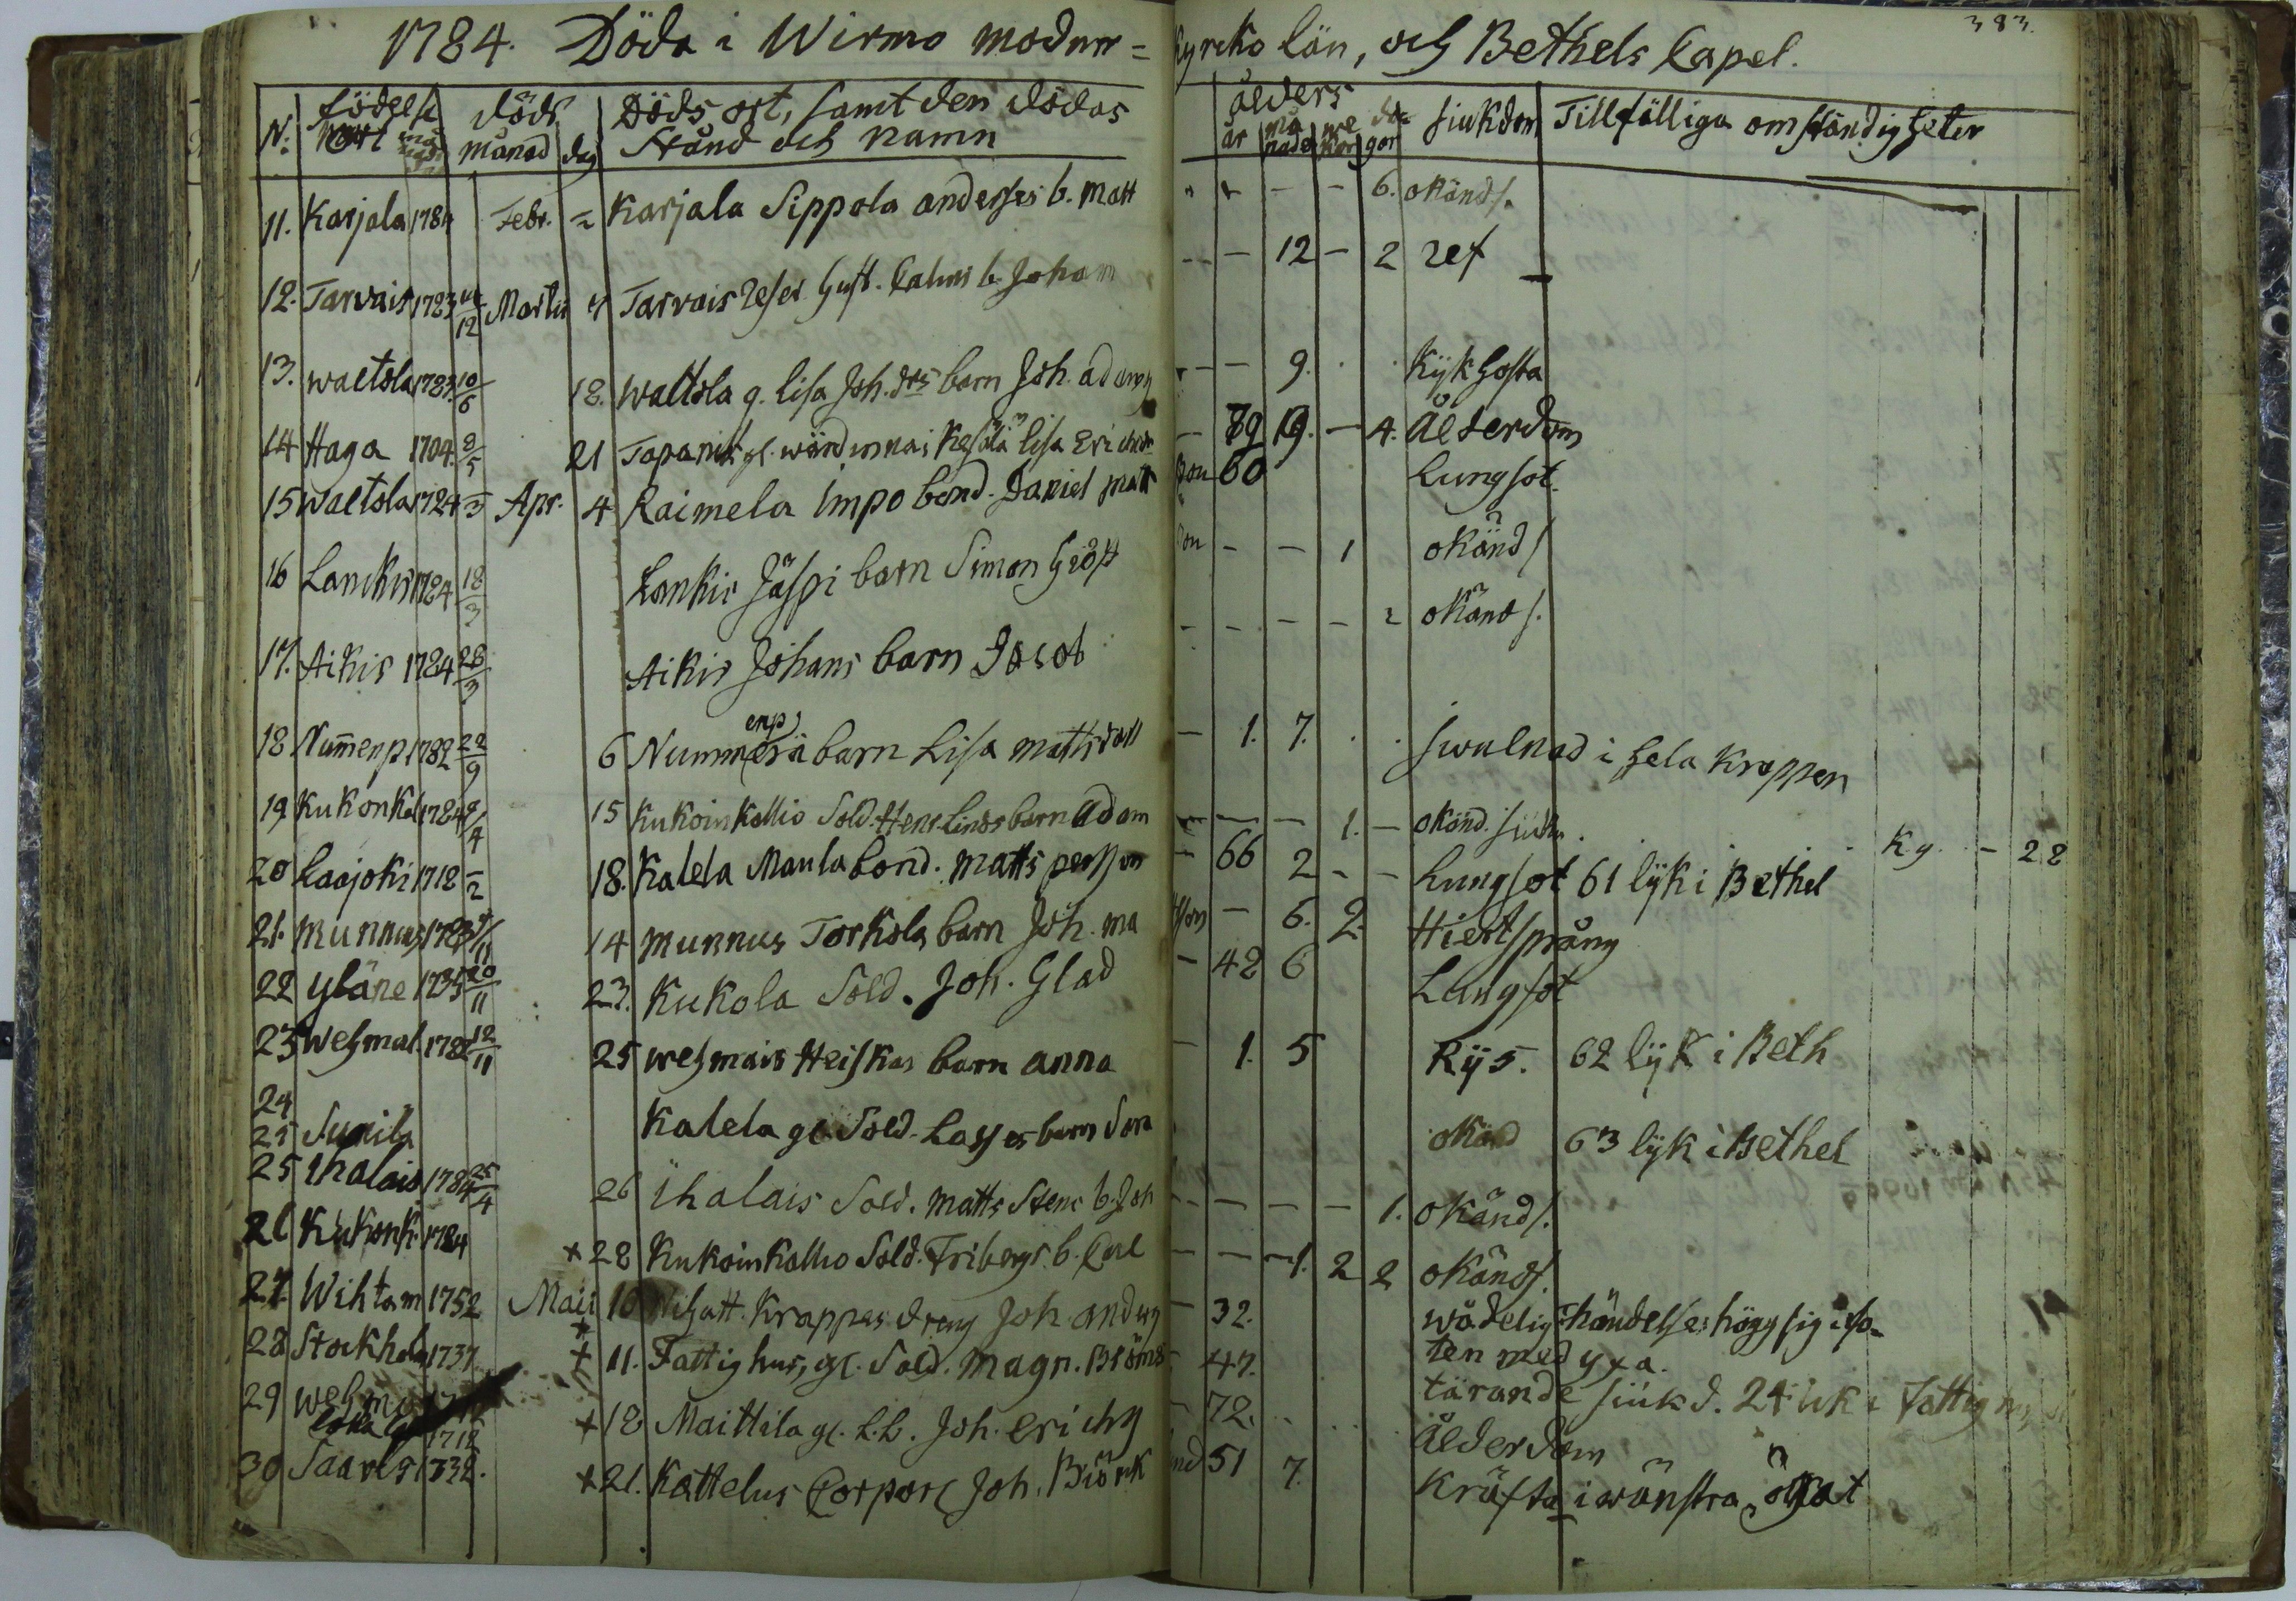 1784. Döda i Wirmo modur= kyrcko län, och Bethels Capel. 383.
N: födelse ort månad döds månad dag Döds ort, samt den dödas Stånd och namn ålders år månader wekor dagor siukdom Tillfälliga omständigheter
11. Karjala 1784 Febr. Karjala Sippola andersses b. Matt - - 6. okänd s.
12. Tarvais 1783 12 Martii 4 Tarvais Gust. b. Johan - - 12 - 2 ref
13. waltola 1783. 10/6 18. waltola g. lisa Joh. drs barn Joh. - - 9. Kijkhosta
14 Haga 1704. 2/5 21 Tapanis gl. wärdinna i Kesälä lisa Erichs - 79 10. - 4. Ålderdom
15 waltola 1724 3 Apr. 4 Raimela Impo bond. Daniel matt son 60 Lungsot
16 Lanckis 1784 18/3 Lankis Jäspi barn Simon - - 1 okänd s
17. Aikis 1784. 28/3 Aikis Johans barn Jacob - - - - 2 okänd s.
18 Nummenp 1782 22/9 6 Nummenp barn Lisa mattsdott - 1. 7. swulnad i hela kroppen
19 Kukonkal 1784 /4 15 Kukoinkallio Sold. Hens linds barn Adam - - - 1. - okänd. siuk.
20 Laajoki 1718 2 18. Kalela Maula bond. matts persson - 66 2 - - Lungsot 61 lijk i Bethel Ky. - 28
21. munnus 1783 /11 14 munnus Torkola barn Joh. ma tsson - 6. 2. Hiertsprång
22 yläne 1735 20/11 23. Kukola Sold. Joh. Glad - 42 6 Lungsot
23 wehmal. 1782 12/11 25 wehmais Heiskas barn anna - 1. 5 Rijs. 62 lijk i Beth
24
25 Sunila Kalela gl Sold. Lasses barn Sara okänd 63 lijk i Bethel
25 ihalais 1784 25/4 26 ihalais Sold. matts Stens b. Joh - - - - 1. okänd s.
26 Kukonk. 1784 +28 Kukoinkallio Sold. Fribergs b. Carl - - -1. 2 2 okänd s.
27 Wihtam 1752 Maii 10 Krappas dreng Joh. - 32. wådelig händelse högg sig i fo=
28 Stockholm 1737 + 11. Fattighus, gl. Sold. magn. Bröms - 47. ten med yxa.
tärande siukd. 24 lik i Fattig
29 wehma 1712 +18 Maittila gl. L.L. Joh. erichs - 72. Ålderdom
30 Saaris 1732. +21. Kattelus Corporl Joh. Biörk 51 7. Kräfta i wänstra ögat